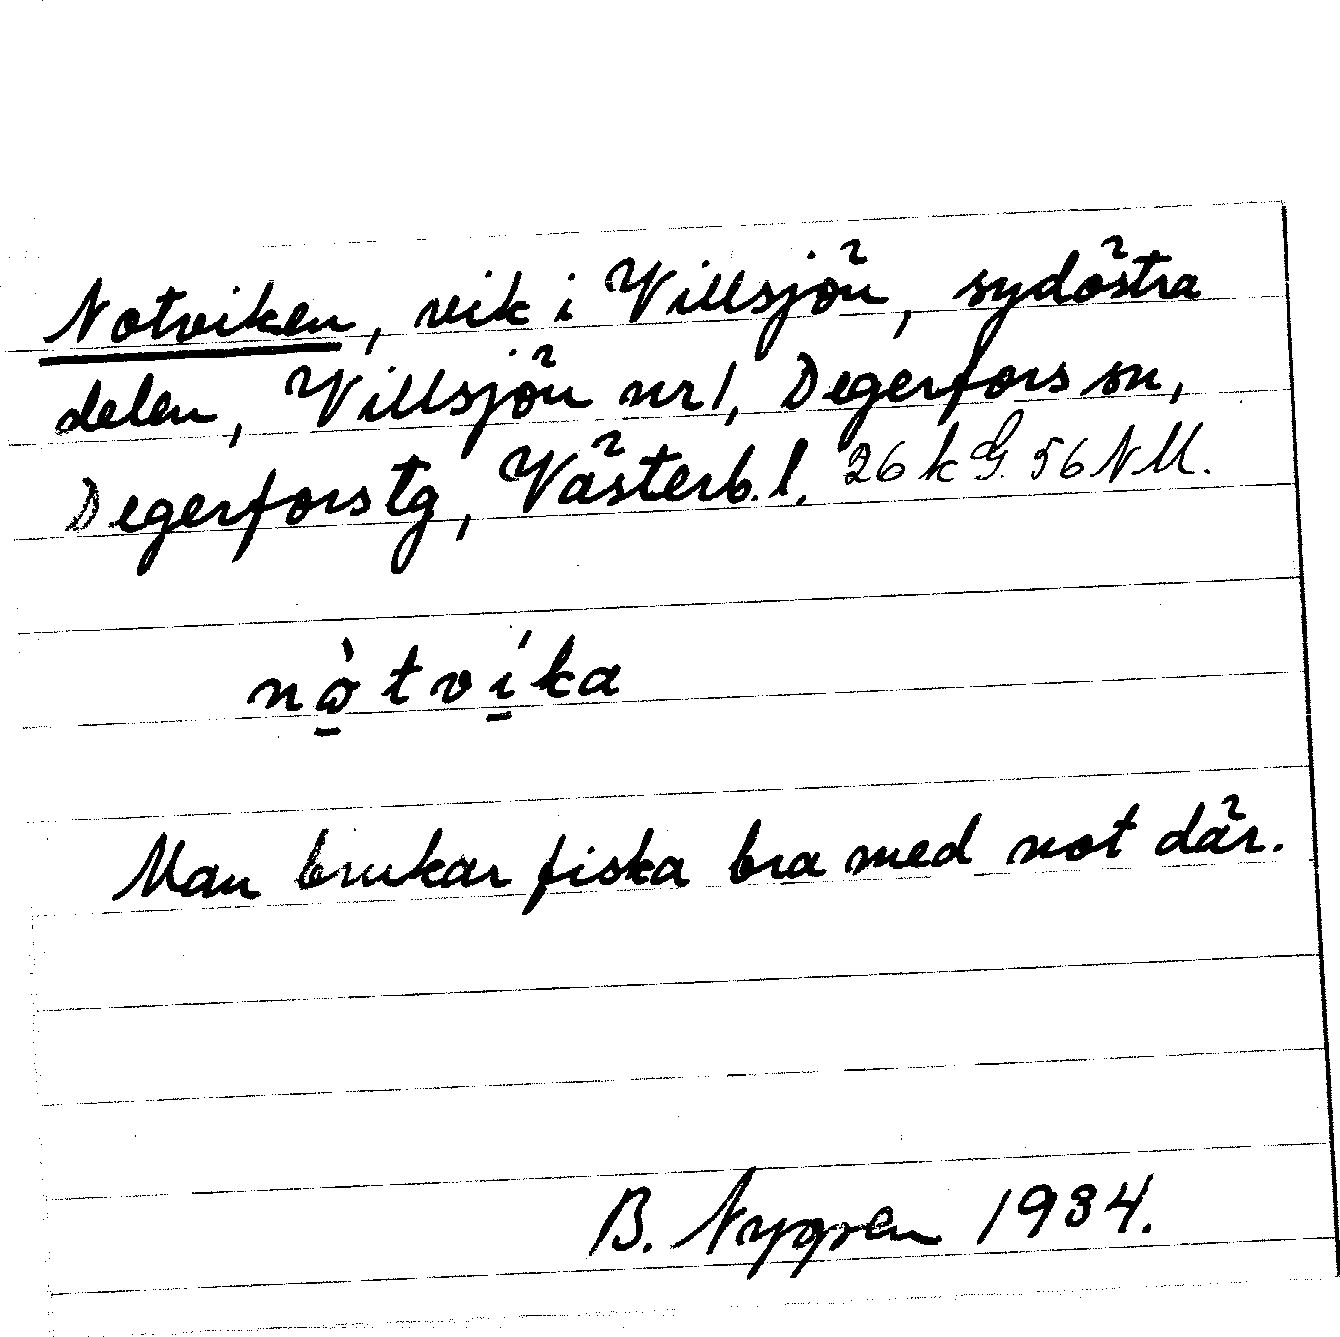 Notviken, vik i Villsjön, sydöstra
delen, Villsjön nr 1, Degerfors sn,
Degerfors tg, Västerb. l. 26 k G. 56 NM.
nò̱tví̱ka
Man brukar fiska bra med not där.
B. Nygren 1934.